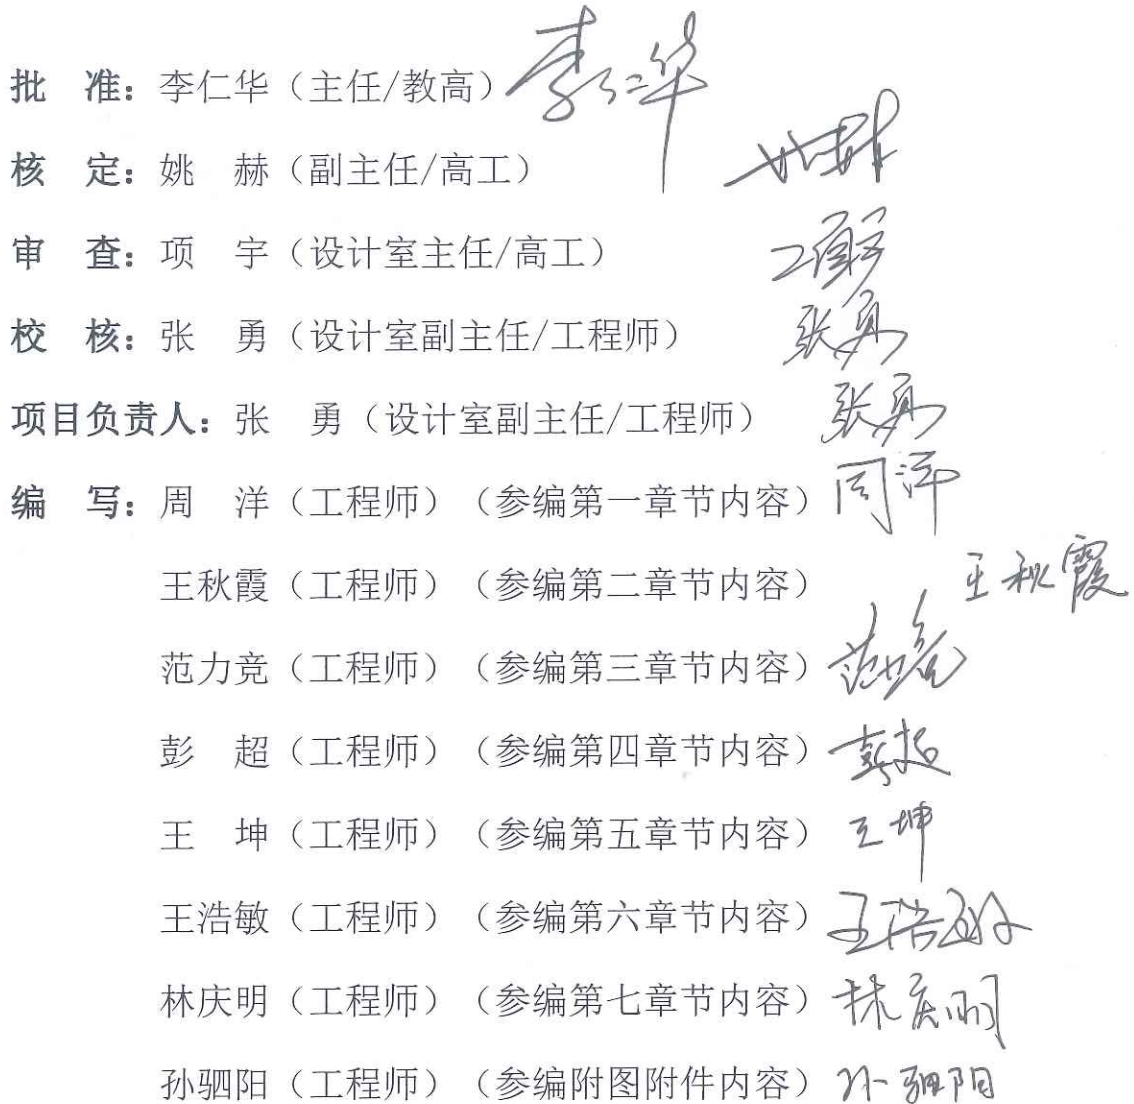 批　准：李仁华（主任/教高）李仁华
核　定：姚　赫（副主任/高工）姚赫
审　查：项　宇（设计室主任/高工）项宇
校　核：张　勇（设计室副主任/工程师）张勇
项目负责人：张　勇（设计室副主任/工程师）张勇
编　写：周　洋（工程师）（参编第一章节内容）周洋
王秋霞（工程师）（参编第二章节内容）王秋霞
范力竞（工程师）（参编第三章节内容）范力竞
彭　超（工程师）（参编第四章节内容）彭超
王　坤（工程师）（参编第五章节内容）王坤
王浩敏（工程师）（参编第六章节内容）王浩敏
林庆明（工程师）（参编第七章节内容）林庆明
孙驷阳（工程师）（参编附图附件内容）孙驷阳